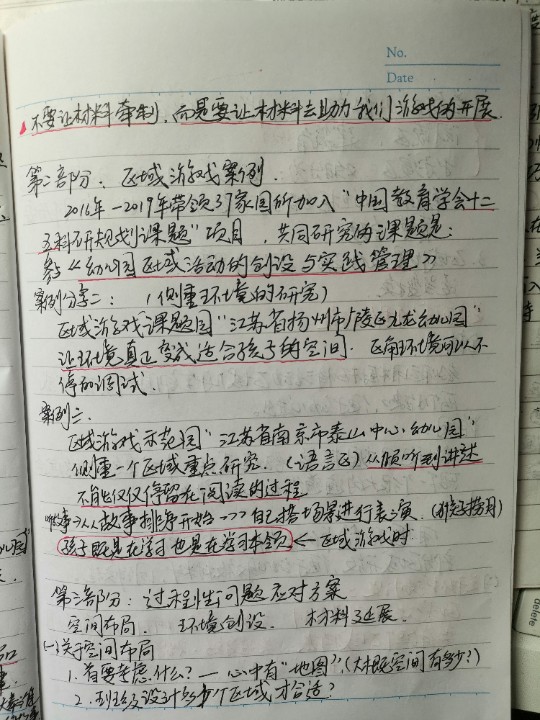 No.
Date
不要让材料牵制,而是要让材料去助力我们游戏的开展.
第二部分:区域游戏案例.
2016年-2019年带领37家园所加入"中国教育学会十二
五科研规划课题"项目,共同研究的课题是:
《幼儿园区域活动的创设与实践管理》
案例分享二:(侧重环境的研究)
区域游戏课题园"江苏省扬州市广陵区九龙幼儿园"
让环境真正变成适合孩子的空间.区角环境可以不
停的调试.
案例二.
区域游戏示范园"江苏省南京市泰山中心幼儿园"
侧重一个区域重点研究.(语言区)从倾听到讲述
不能仅仅停留在阅读的过程
故事→从故事排序开始→>>自己搭场景进行表演.
孩子既是在学习也是在学习本领←区域游戏时
第三部分:过程性问题应对方案
空间布局.环境创设.材料延展.
(一)关于空间布局
1.首要考虑什么?—心中有"地图".(大概空间有多少?)
2.班级设计多少个区域才合适?
delete